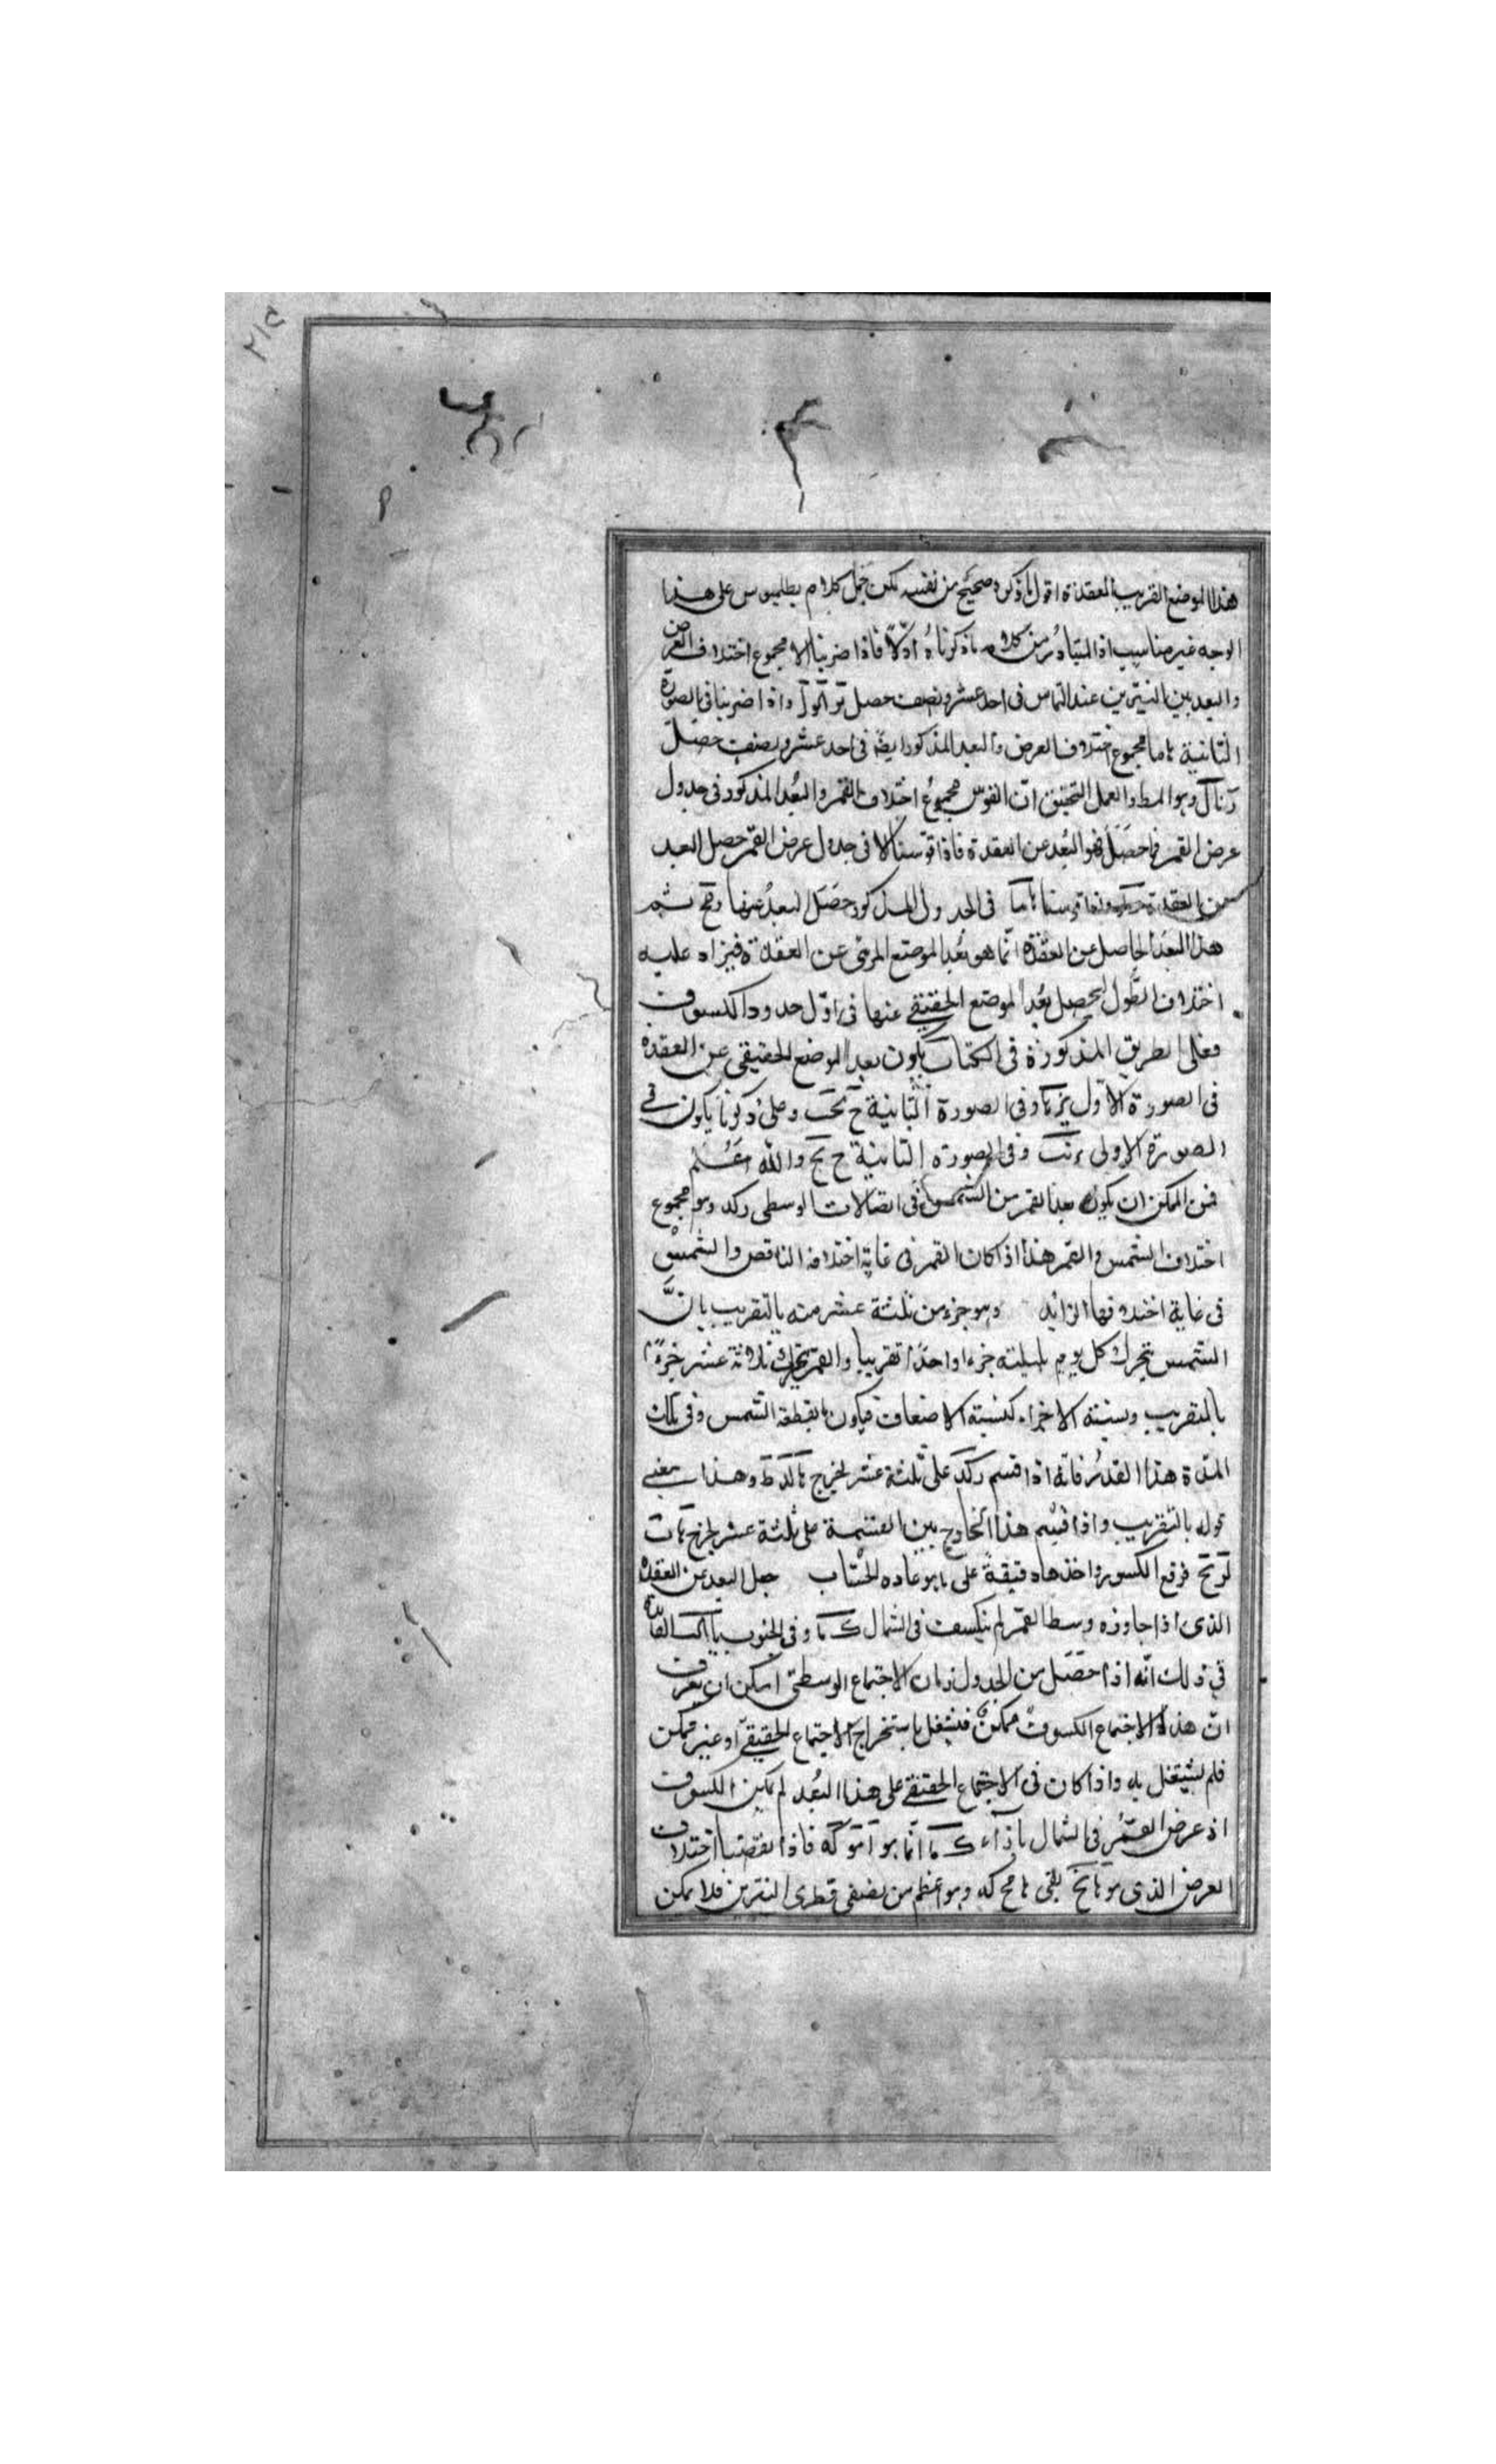 هذا الموضع القريب العقدة اقول ما ذكره صحيح من نفسه لكن حمل كلام بطلميوس على هذا
الوجه غير مناسب اذ المتبادر من كلامه ما ذكرناه اولا فاذا ضربنا الا مجموع اختلاف العرض
والبعد بين النيرين عند التماس فى احد عشر ونصف حصل واذا ضربنا فى الصورة
الثانية ما مجموع اختلاف العرض والبعد المذكور ايضا فى احد عشر ونصف حصل
وهو المط والعمل التحقيق ان القوس مجموع اختلاف القمر والبعد المذكور فى جدول
عرض القمر فما حصل فهو البعد عن العقدة فاذا قوسنا الا فى جدول عرض القمر حصل البعد
عن العقدة فى الجدول المذكور حصل البعد عنها ثم
هذا البعد الحاصل عن العقدة انما هو بعد الموضع المرئى عن العقدة فيزاد عليه
اختلاف الطول ليحصل بعد الموضع الحقيقى عنها فى اول حدود الكسوف
فعلى الطريق المذكورة فى الكتاب يكون بعد الموضع الحقيقى عن العقدة
فى الصورة الاولى وفى الصورة الثانية وعلى ما ذكرنا يكون فى
الصورة الاولى وفى الصورة الثانية والله اعلم
فمن الممكن ان يكون بعد القمر من الشمس فى اتصالات الوسطى ركد وهو مجموع
اختلاف الشمس والقمر هذا اذا كان القمر فى غاية اختلافه الناقص والشمس
فى غاية اختلافها الزايد وهو جزء من ثلثة عشر منه بالتقريب بان
الشمس يتحرك كل يوم بليلته جزءا واحدا تقريبا والقمر يتحرك ثلاثة عشر جزءا
بالتقريب ونسبته الاجزاء كنسبته الاضعاف فيكون ما يقطعه الشمس وفى تلك
المدة هذا القدر فانه اذا قسم ركد على ثلثة عشر يخرج وهذا معنى
قوله بالتقريب واذا قسم هذا الخارج بين القسمة على ثلثة عشر يخرج
فرفع الكسور واخذها دقيقة على ما هو عادة الحساب جعل البعد عن العقدة
الذى اذا جاوزه وسط القمر لم ينكسف فى الشمال ك ما وفى الجنوب يا الفايدة
فى ذلك انه اذا حصل من الجدول زمان الاجتماع الوسطى امكن ان يعرف
ان هذا الاجتماع الكسوف ممكن فيشتغل باستخراج الاجتماع الحقيقى او غير ممكن
فلم يشتغل به واذا كان فى الاجتماع الحقيقى على هذا البعد لم يكن الكسوف
اذ عرض القمر فى الشمال بازاء ك ما انما هو فاذا نقصنا اختلاف
العرض الذى هو يبقى وهو اعظم من نصفى قطرى النيرين فلا يمكن